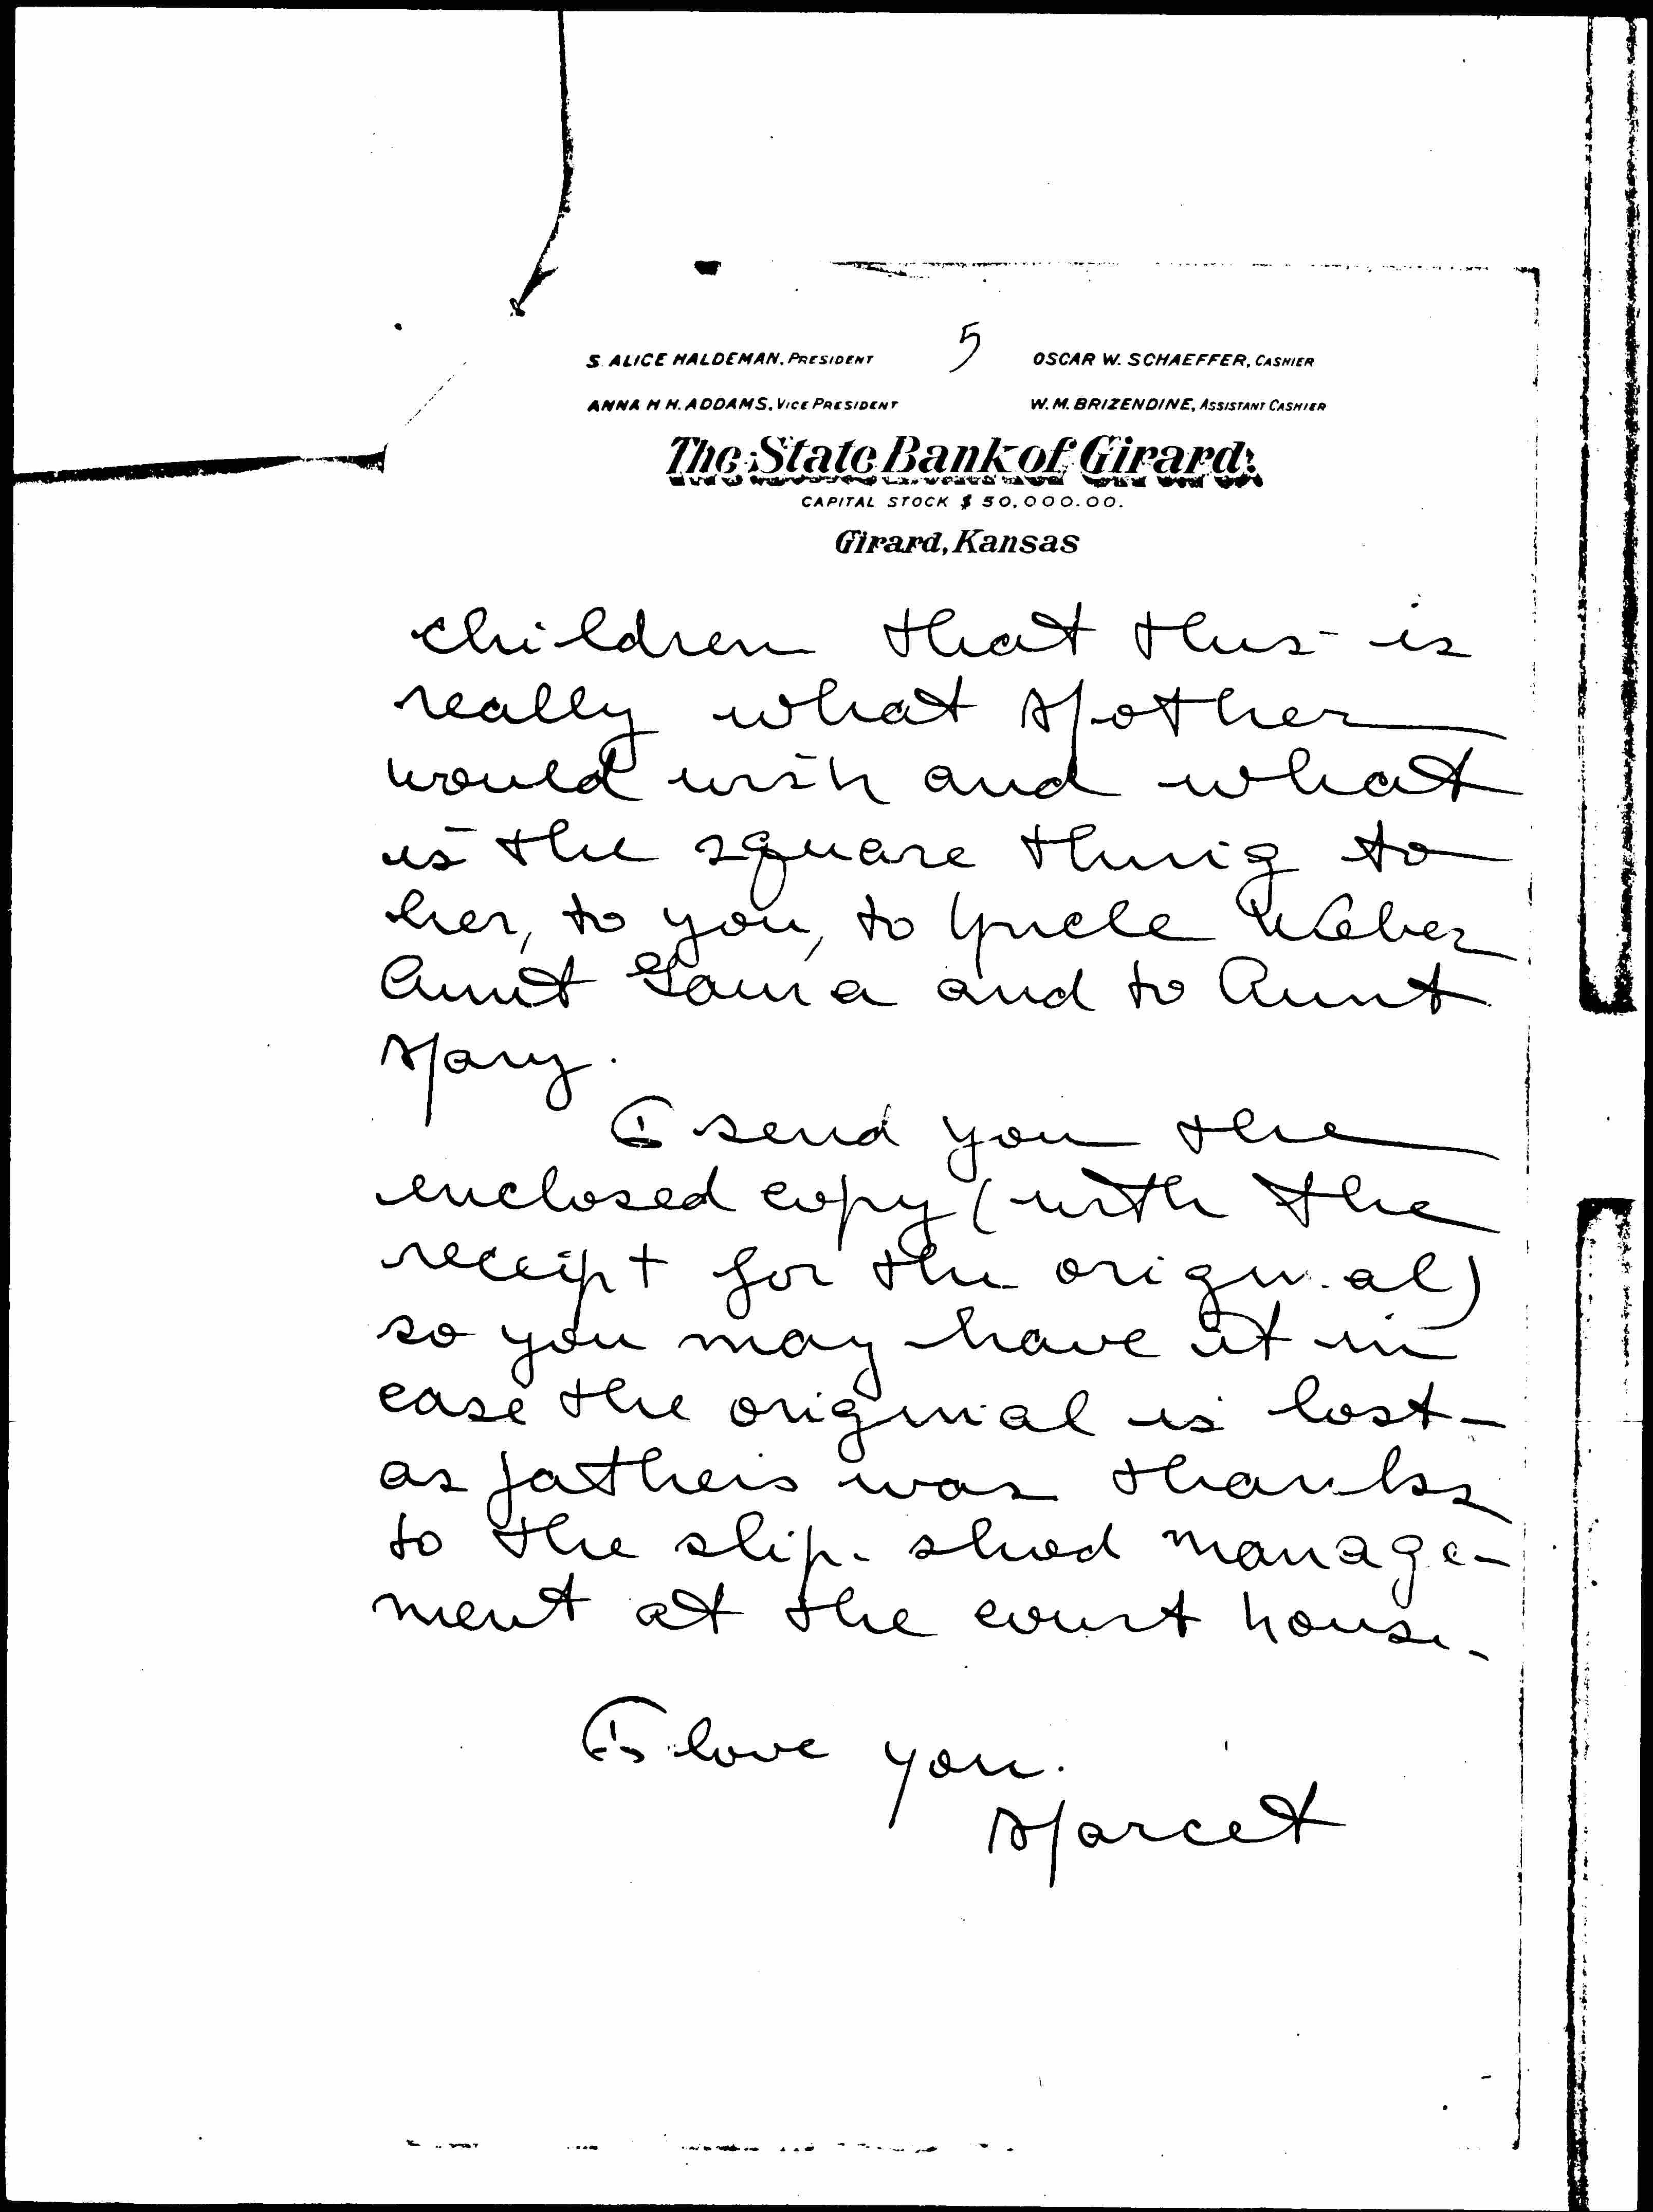 5
S. ALICE HALDEMAN, PRESIDENT OSCAR W. SCHAEFFER, CASHIER
ANNA H H. ADDAMS, VICE PRESIDENT W. M. BRIZENDINE, ASSISTANT CASHIER
The State Bank of Girard.
CAPITAL STOCK $ 50,000.00.
Girard, Kansas
children that this is
really what Mother
would wish and what
is the square thing to
her, to you, to Uncle Weber
Aunt Laura and to Aunt
Mary.
I send you the
enclosed copy (with the
receipt for the original)
so you may have it in
case the original is lost -
as fathers was thanks
to the slip-shod manage-
ment at the court house.
I love you.
Marcet